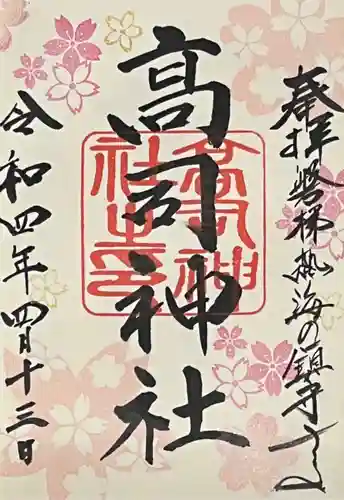 奉拝 磐梯熱海の鎮守さま
高司神社
令和四年四月十三日
高司神社之印